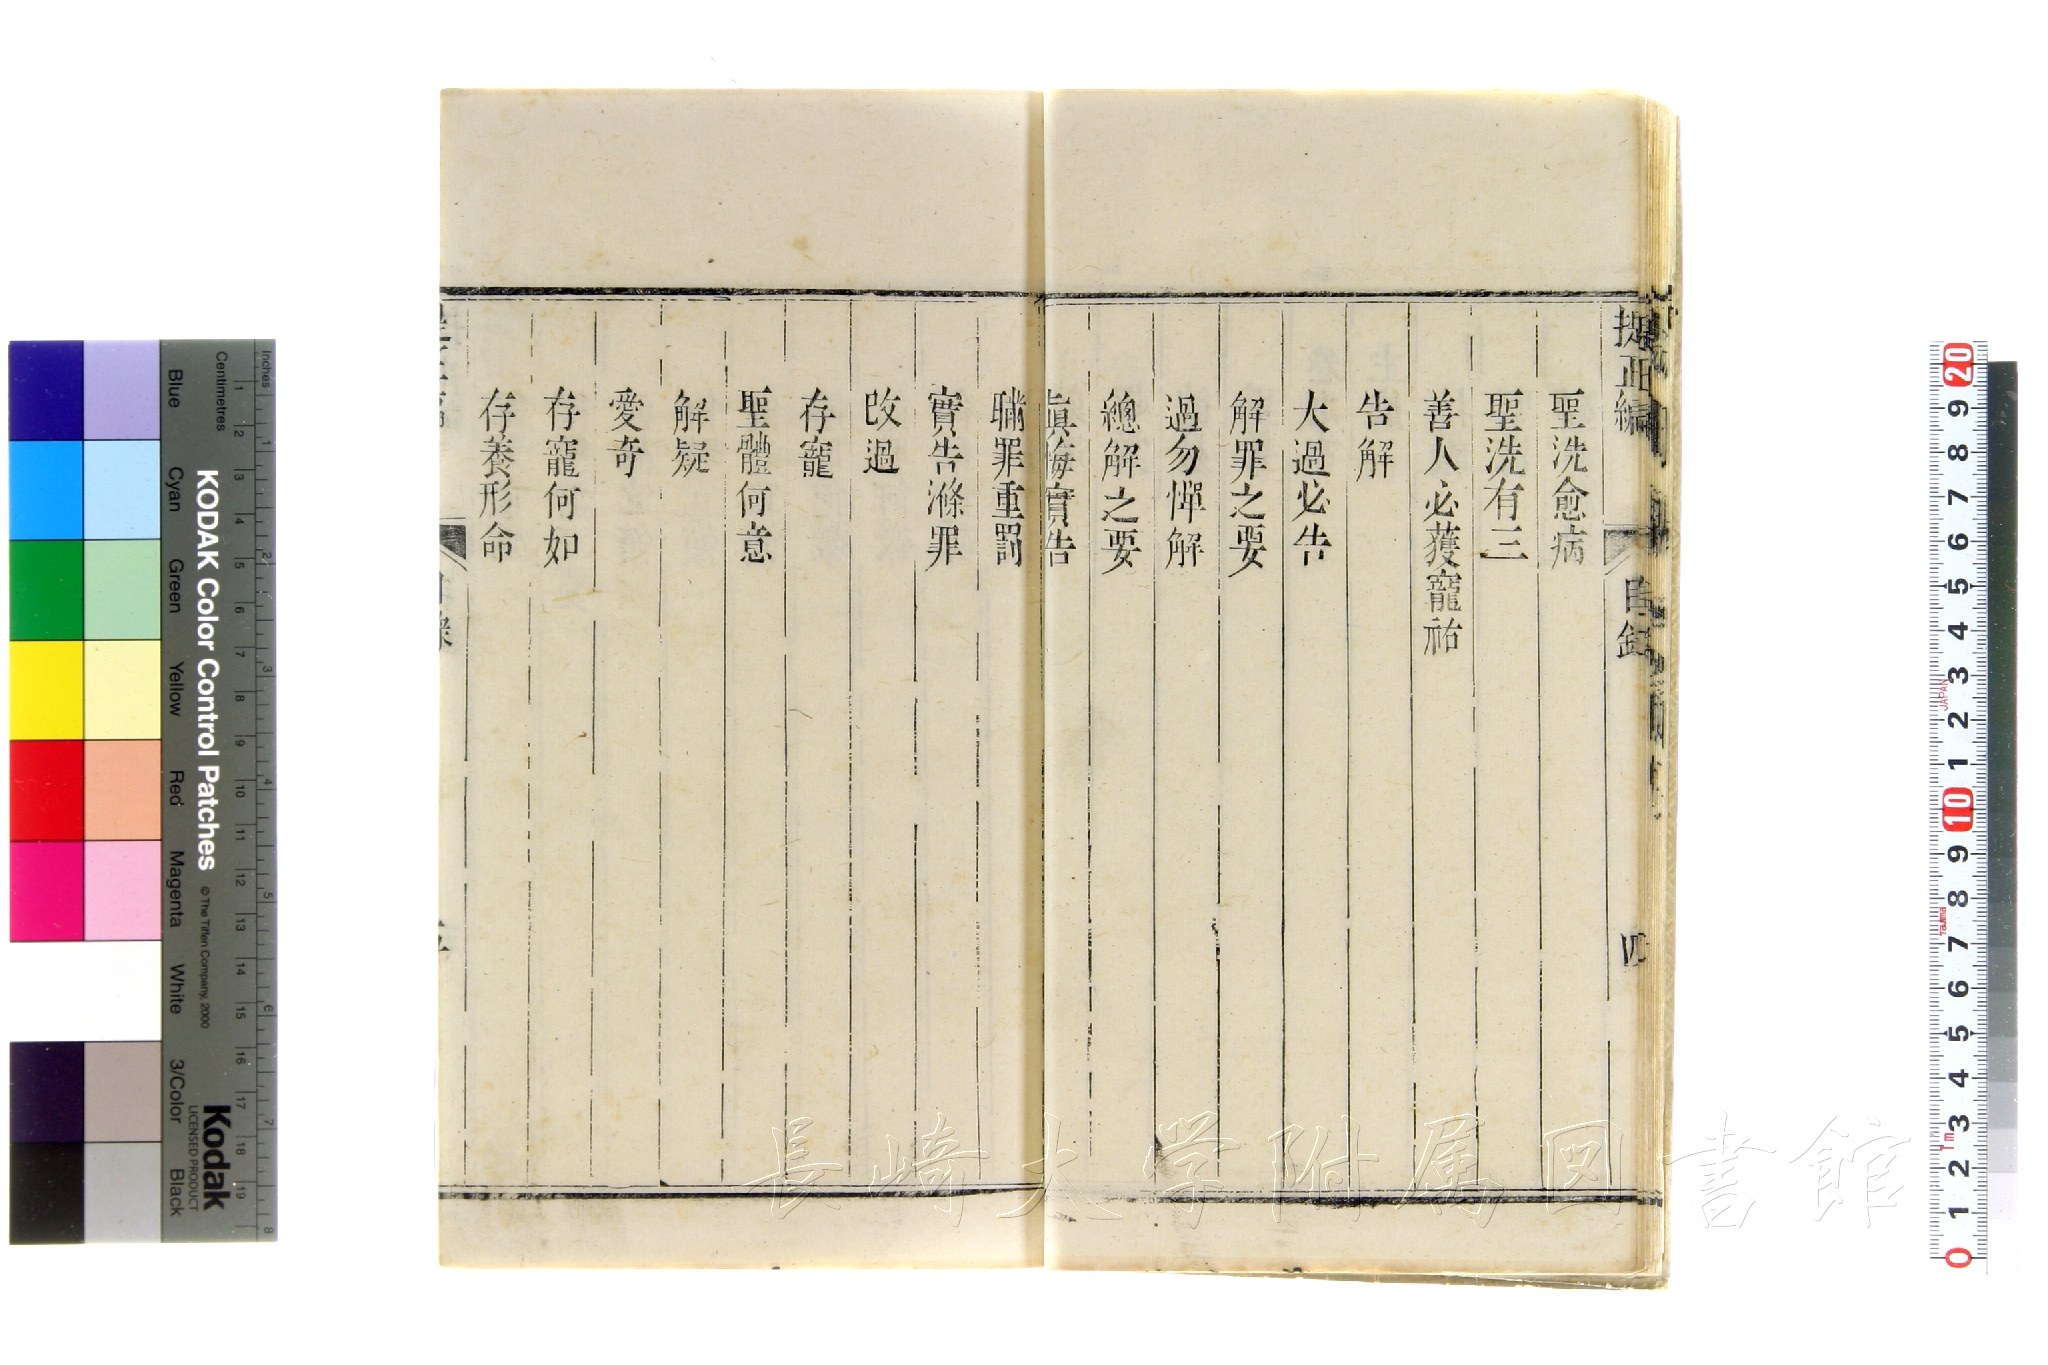 提正編
目錄
四
聖洗愈病
聖洗有三
善人必獲寵祐
告解
大過必告
解罪之要
過勿憚解
總解之要
眞悔實告
瞞罪重罰
實告滌罪
改過
存寵
聖體何意
解疑
愛奇
存寵何如
存養形命
長崎大学附属図書館
KODAK Color Control Patches
© The Tiffen Company, 2000
Kodak
LICENSED PRODUCT
Blue
Cyan
Green
Yellow
Red
Magenta
White
3/Color
Black
Inches
1 2 3 4 5 6 7 8
Centimetres
1 2 3 4 5 6 7 8 9 10 11 12 13 14 15 16 17 18 19
20 9 8 7 6 5 4 3 2 1 10 9 8 7 6 5 4 3 2 1 0
JAPAN
1m